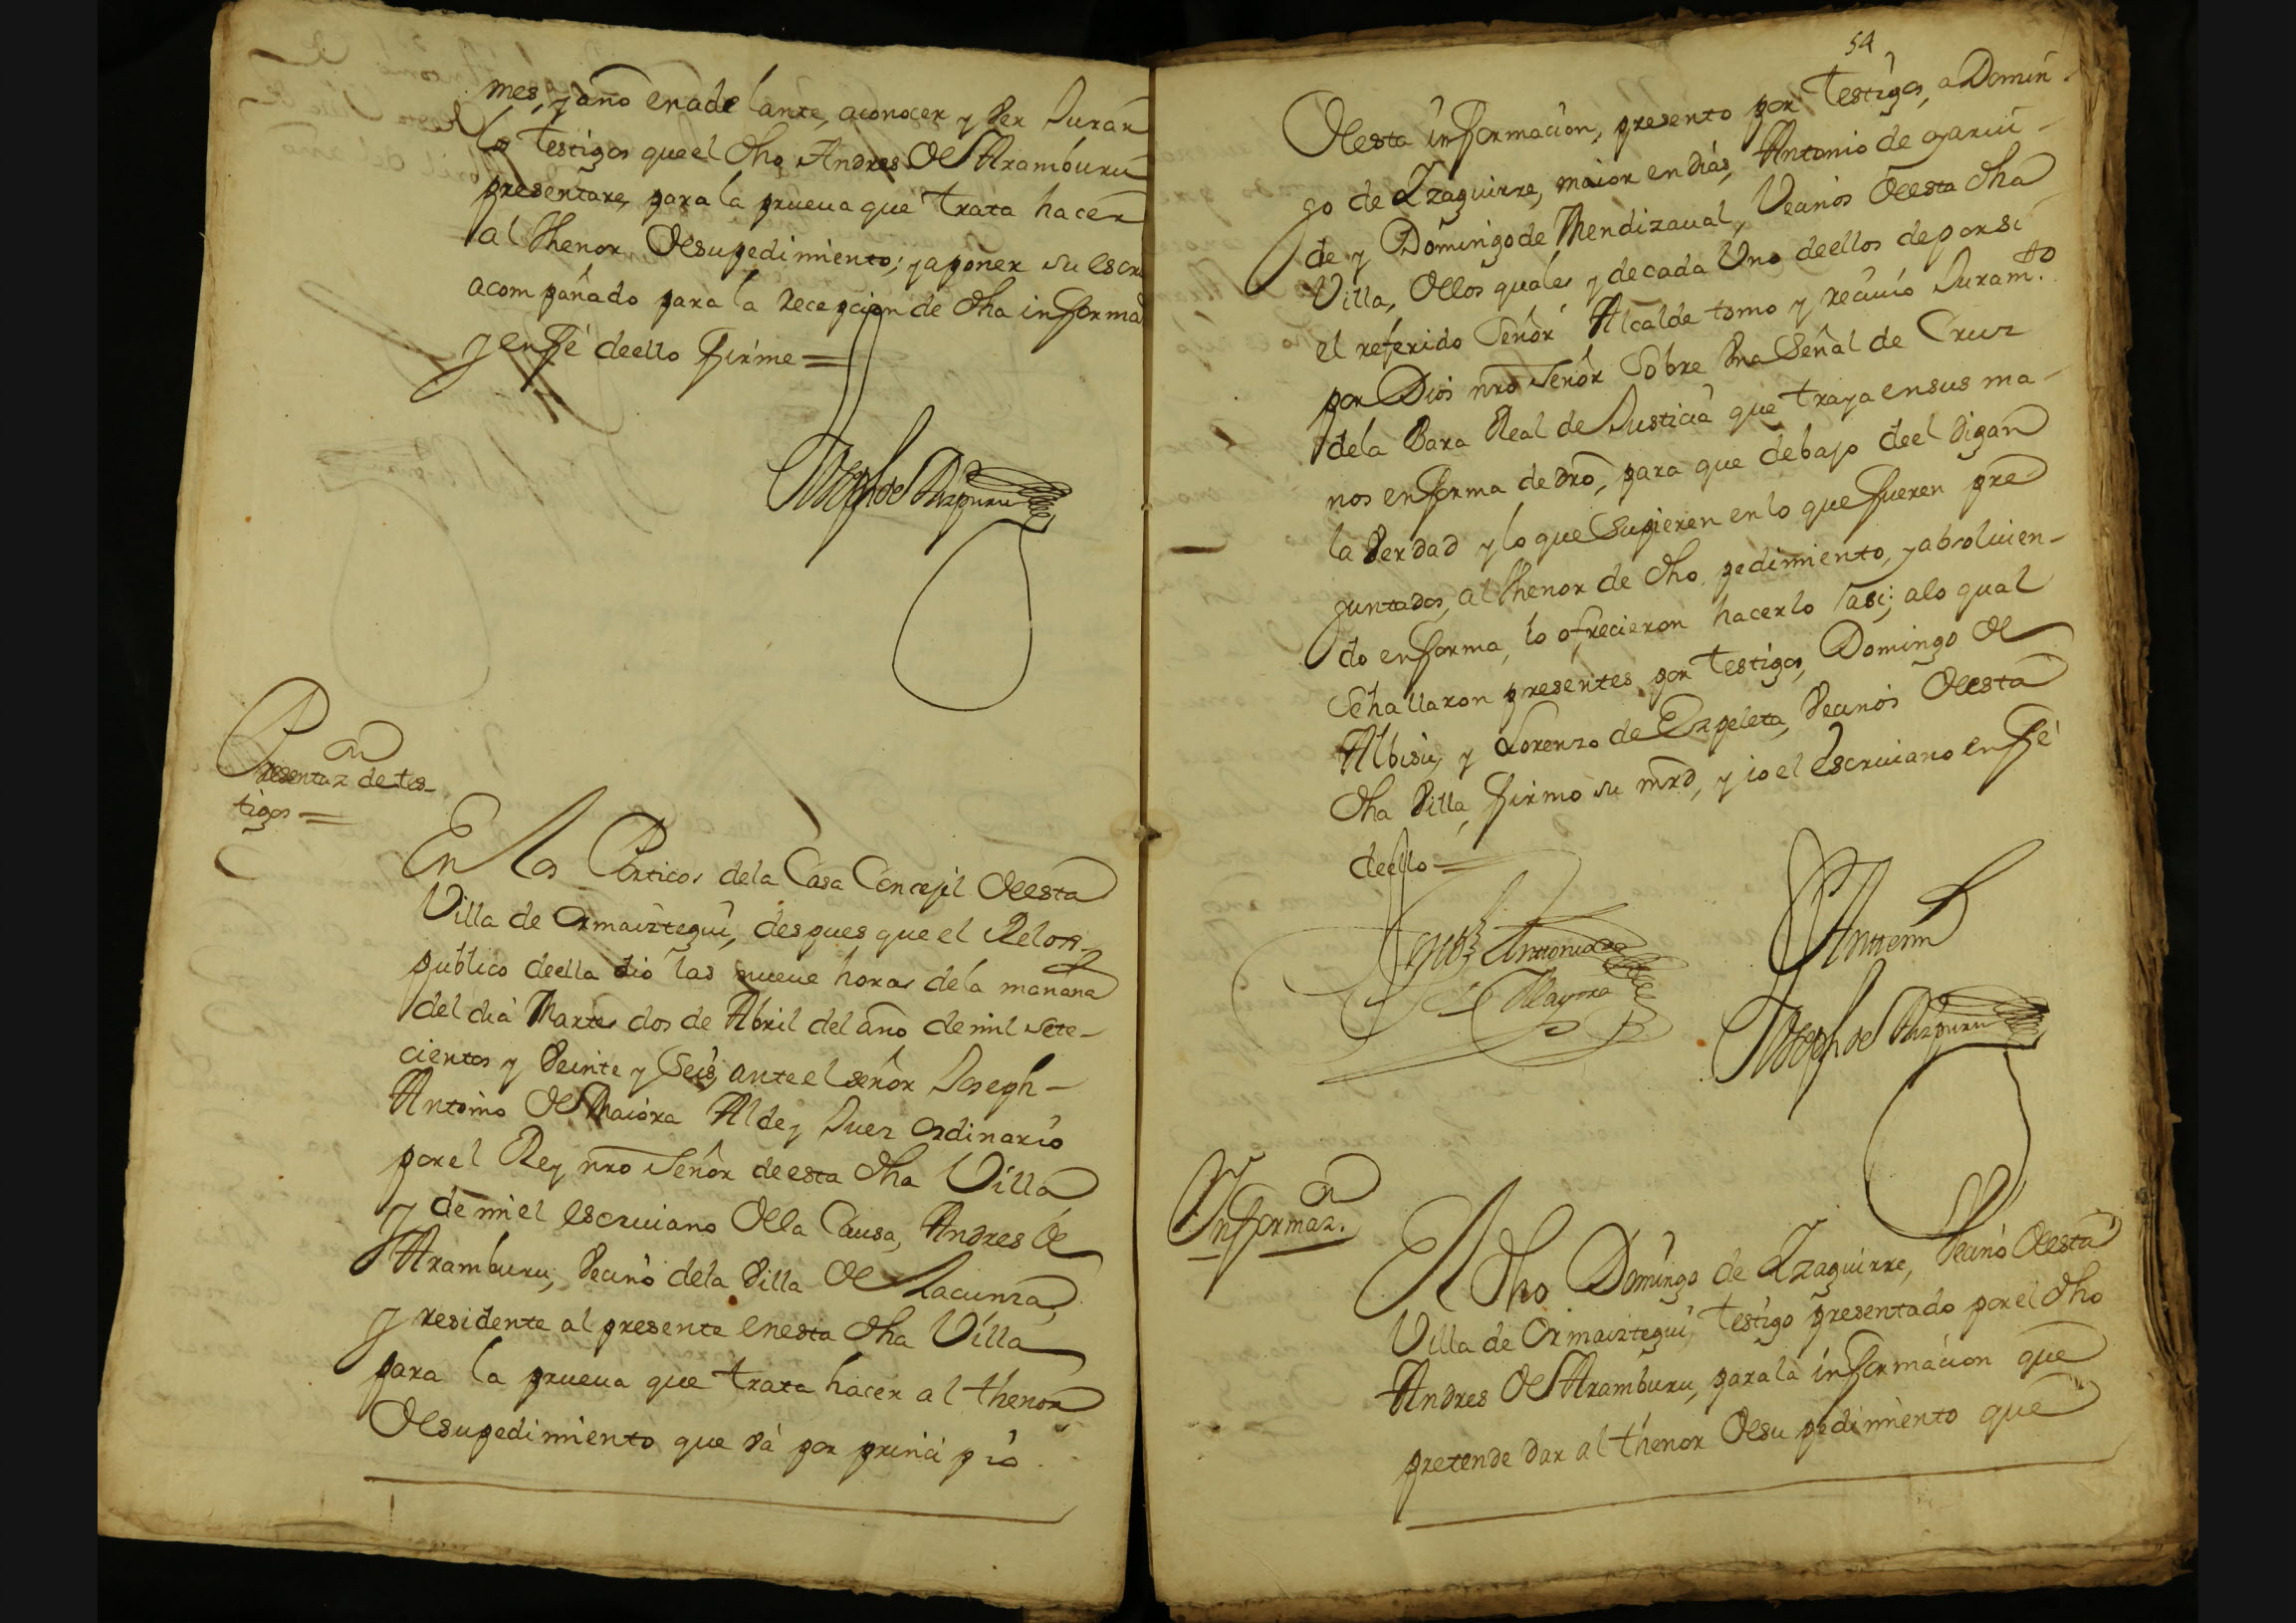 mes, y año en adelante, aconocer y Ver Jurar
los Testigos que el dho Andres de Aramburu
presentare, para la prueua que trata hacer
al thenor de su pedimiento; y aponer su escri
acompañado para la recepcion de dha informa
y en fé de ello firme =
Joseph de Aizpuru
Presentaz.on de tes-
tigos =
En los Porticos de la Casa Concejil de esta
Villa de Ormaiztegui, despues que el Relox
publico de ella dio las nueue horas de la mañana
del dia Martes dos de Abril del año de mil sete-
cientos y Veinte y Seis, ante el señor Joseph
Antonio de Maiora Alde y Juez ordinario
por el Rey nro Señor de esta dha Villa
y de mi el escriuano de la Causa, Andres de
Aramburu, Vecino de la Villa de Lacunza,
y residente al presente en esta dha Villa
para la prueua que trata hacer al thenor
de su pedimiento que và por principio
54
de esta informacion, presento por Testigos, a Domin-
go de Yzaguirre, maior en dias, Antonio de oyarui-
de y Domingo de Mendizaual, Vecinos de esta dha
Villa, de los quales y de cada Uno de ellos de por si
el referido Señor Alcalde tomo y reciuio Juram.to
por Dios nro Señor Sobre Una Señal de Cruz
de la Bara Real de Justicia que traya en sus ma-
nos en forma de dro, para que debajo de el digan
la Verdad y lo que Supieren en lo que fueren pre
guntados, al thenor de dho pedimiento, y absoluien-
do en forma, lo ofrecieron hacerlo asi; a lo qual
Se hallaron presentes por Testigos, Domingo de
Albisu, y Lorenzo de Ezpeleta, Vecinos de esta
dha Villa, firmo su mrd, y io el escriuano en fé
de ello =
Joseph Antonio de
Mayora
Ante mi
Joseph de Aizpuru
Informaz.on
El dho Domingo de Yzaguirre, Vecino de esta
Villa de Ormaiztegui, Testigo presentado por el dho
Andres de Aramburu, para la informacion que
pretende dar al thenor de su pedimiento que